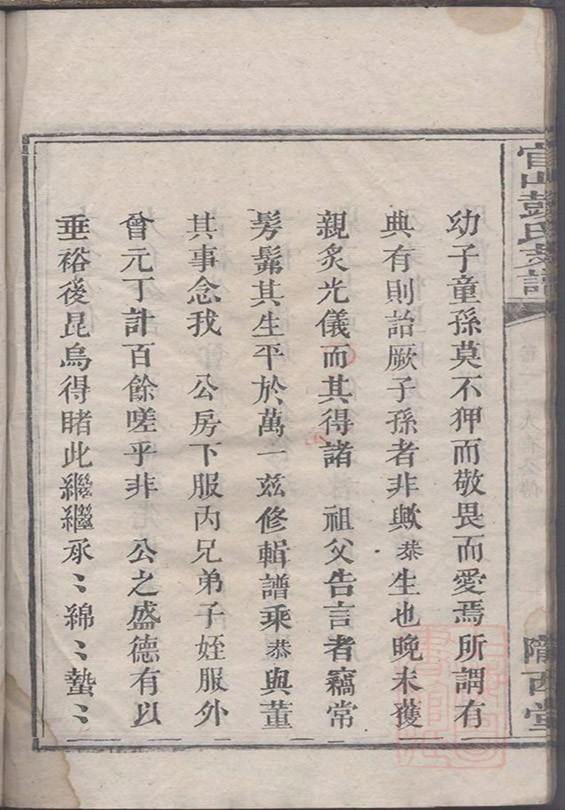 幼子童孫莫不狎而敬畏而愛焉所謂有
典有則詒厥子孫者非歟恭生也晚未獲
親炙光儀而其得諸 祖父告言者竊常
髣髴其生平於萬一茲修輯譜乘恭與董
其事念我 公房下服丙兄弟子姪服外
曾元丁計百餘嗟乎非 公之盛德有以
垂裕後昆烏得睹此繼繼承〻綿〻蟄〻
隴西堂